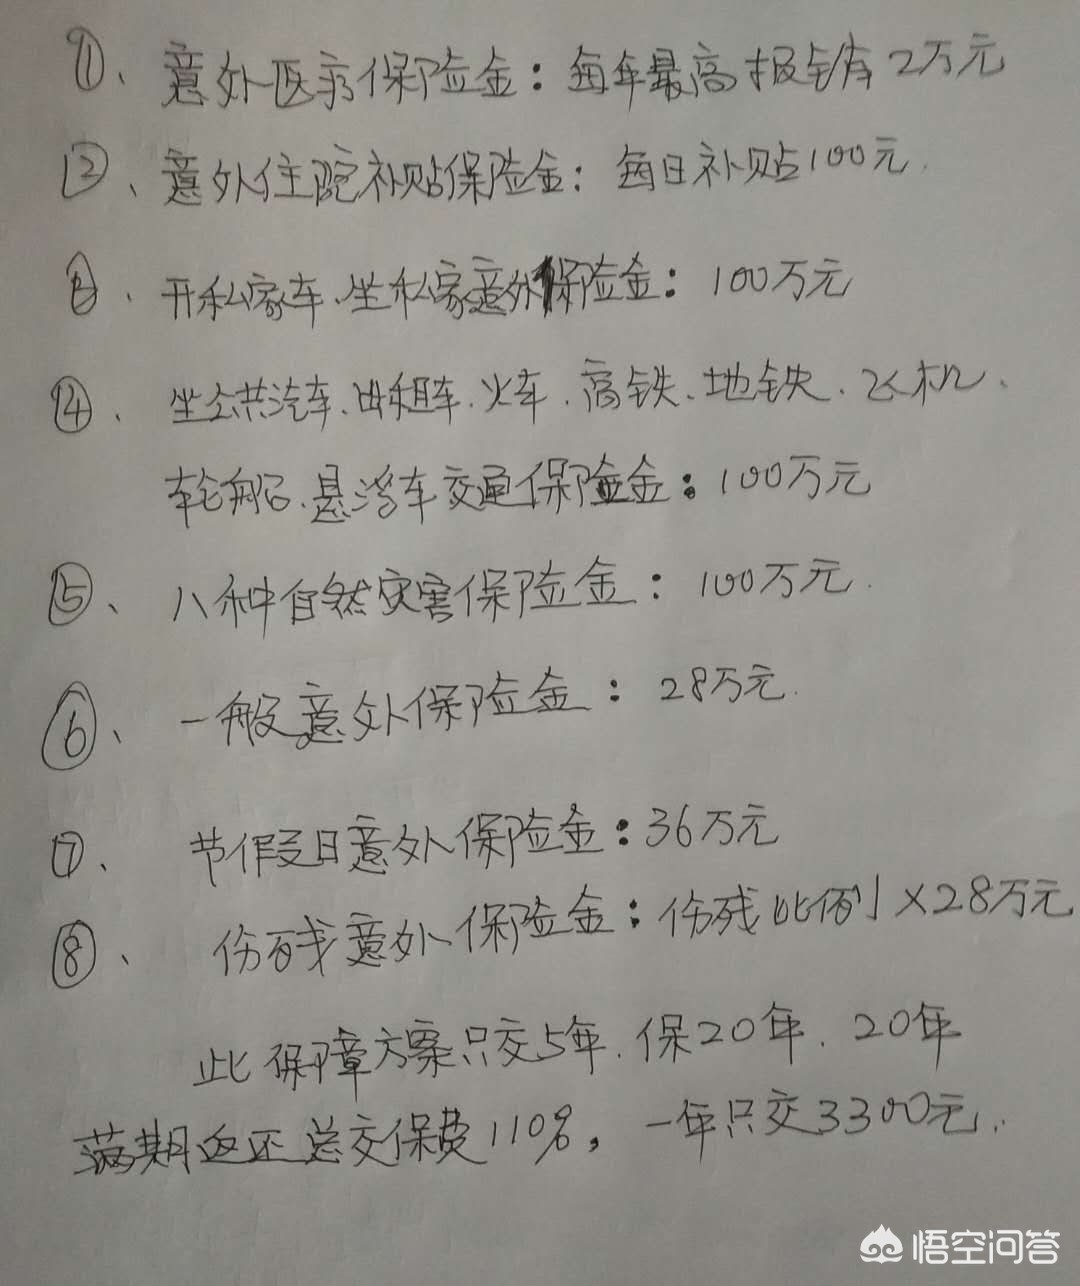 ①、意外医疗保险金：每年最高报销2万元
②、意外住院补贴保险金：每日补贴100元.
③、开私家车、坐私家意外保险金：100万元
④、坐公共汽车、出租车、火车、高铁、地铁、飞机、
轮船、悬浮车交通保险金：100万元
⑤、八种自然灾害保险金：100万元.
⑥、一般意外保险金：28万元.
⑦、节假日意外保险金：36万元
⑧、伤残意外保险金：伤残比例×28万元
此保障方案只交5年、保20年、20年
满期返还总交保费110%，一年只交3300元.
悟空问答